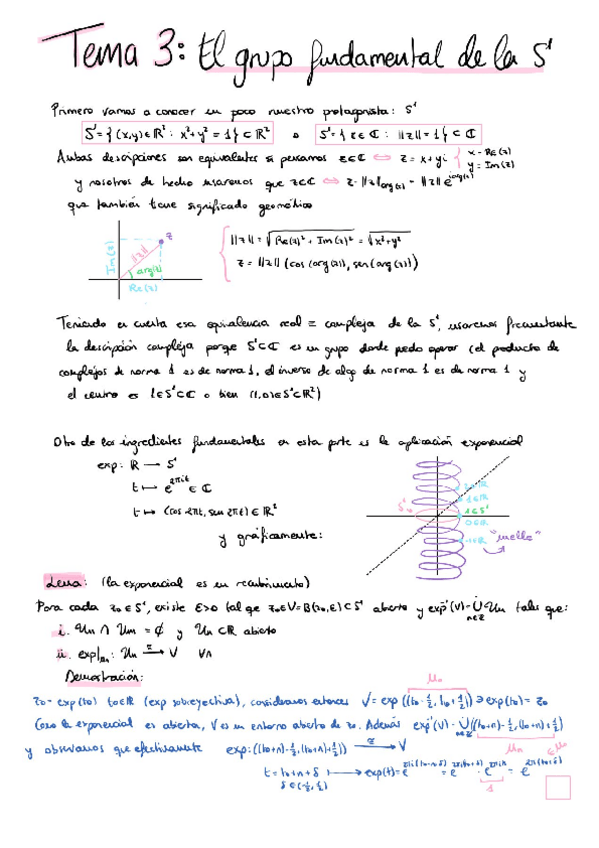 Tema 3: El grupo fundamental de la S¹
Primero vamos a conocer un poco nuestro protagonista: S¹
S¹ = { (x,y) ∈ ℝ² : x²+y² = 1 } ⊂ ℝ² o S¹ = { z ∈ ℂ : ||z|| = 1 } ⊂ ℂ
Ambas descripciones son equivalentes si pensamos z∈ℂ ⟺ z = x+yi { x = Re(z)
y = Im(z)
y nosotros de hecho usaremos que z∈ℂ ⟺ z = ||z||arg(z) = ||z|| e^{i arg(z)}
que también tiene significado geométrico
Im(z) ||z|| z
arg(z)
Re(z)
||z|| = √(Re(z)² + Im(z)²) = √(x²+y²)
z = ||z|| (cos(arg(z)), sen(arg(z)))
Teniendo en cuenta esa equivalencia real = compleja de la S¹, usaremos frecuentemente
la descripción compleja porque S¹⊂ℂ es un grupo donde puedo operar (el producto de
complejos de norma 1 es de norma 1, el inverso de algo de norma 1 es de norma 1 y
el centro es 1∈S¹⊂ℂ o bien (1,0)∈S¹⊂ℝ²)
Otro de los ingredientes fundamentales en esta parte es la aplicación exponencial
exp: ℝ → S¹
t ↦ e^{2πit} ∈ ℂ
t ↦ (cos 2πt, sen 2πt) ∈ ℝ²
y gráficamente:
2∈ℝ
1∈ℝ
S¹ 1∈S¹
0∈ℝ
-1∈ℝ "muelle"
Lema: (la exponencial es un recubrimiento)
Para cada z₀∈S¹, existe ε>0 tal que z₀∈V=B(z₀,ε)⊂S¹ abierto y exp⁻¹(V) = ∪̇_{n∈ℤ} Uₙ tales que:
i. Uₙ ∩ Uₘ = ∅ y Uₙ⊂ℝ abierto
ii. exp|_{Uₙ}: Uₙ → V ∀n
Demostración:
U₀
z₀ = exp(t₀) t₀∈ℝ (exp sobreyectiva), consideramos entonces V = exp((t₀-½, t₀+½)) ∋ exp(t₀) = z₀
Como la exponencial es abierta, V es un entorno abierto de z₀. Además exp⁻¹(V) = ∪̇_{n∈ℤ} ((t₀+n)-½, (t₀+n)+½)
Uₙ
y observamos que efectivamente exp: ((t₀+n)-½, (t₀+n)+½) → V
∈U₀
t = t₀+n+δ ↦ exp(t) = e^{2πi(t₀+n+δ)} = e^{2πi(t₀+δ)} · e^{2πin} = e^{2πi(t₀+δ)}
δ∈(-½,½) 1